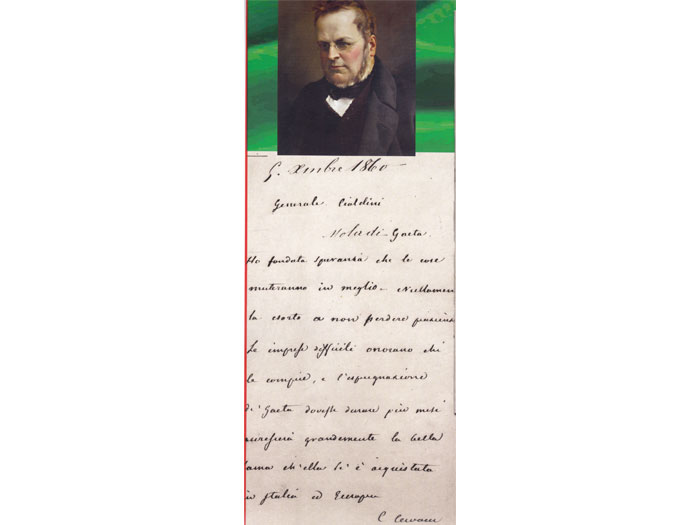 9. Xmbre 1860
Generale Cialdini
Mola di Gaeta.
Ho fondata speranza che le cose
muteranno in meglio. Nullamen
la esorto a non perdere pazienza
Le imprese difficili onorano chi
le compie, e l'espugnazione
di Gaeta dovesse durare più mesi
accrescerà grandemente la bella
fama ch'ella si è acquistata
in Italia ed Europa
C Cavour